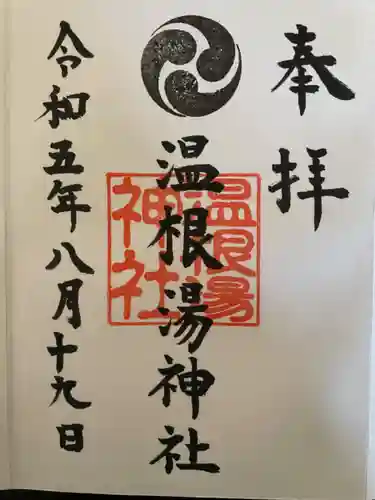 奉拝
温根湯神社
温根湯
神社
令和五年八月十九日